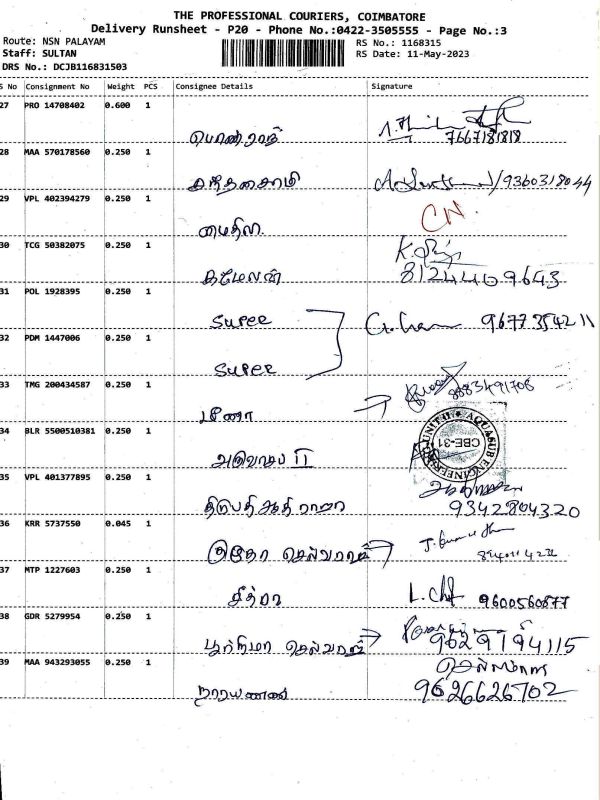 THE PROFESSIONAL COURIERS, COIMBATORE
Delivery Runsheet - P20 - Phone No.:0422-3505555 - Page No.:3
Route: NSN PALAYAM RS No.: 1168315
Staff: SULTAN RS Date: 11-May-2023
DRS No.: DCJB116831503
S No Consignment No Weight PCS Consignee Details Signature
27 PRO 14708402 0.600 1
பொன்ராஜ் 7667181818
28 MAA 570178560 0.250 1
கந்தசாமி 9360318044
29 VPL 402394279 0.250 1
மைதிலி CN.
30 TCG 50382075 0.250 1
8124409643
31 POL 1928395 0.250 1
Super 9677354211
32 PDM 1447006 0.250 1
Super
33 TMG 200434587 0.250 1
8883491708
மீனா
34 BLR 5500510381 0.250 1
UNIT II AQUASUB ENGINEERING CBE-31
35 VPL 401377895 0.250 1
9342804320
36 KRR 5737550 0.045 1
செல்வராஜ்
37 MTP 1227603 0.250 1
சித்ரா 9600560877
38 GDR 5279954 0.250 1
பூர்ணிமா செல்வராஜ் 9629194115
39 MAA 943293055 0.250 1
நாராயணன் 9626626702